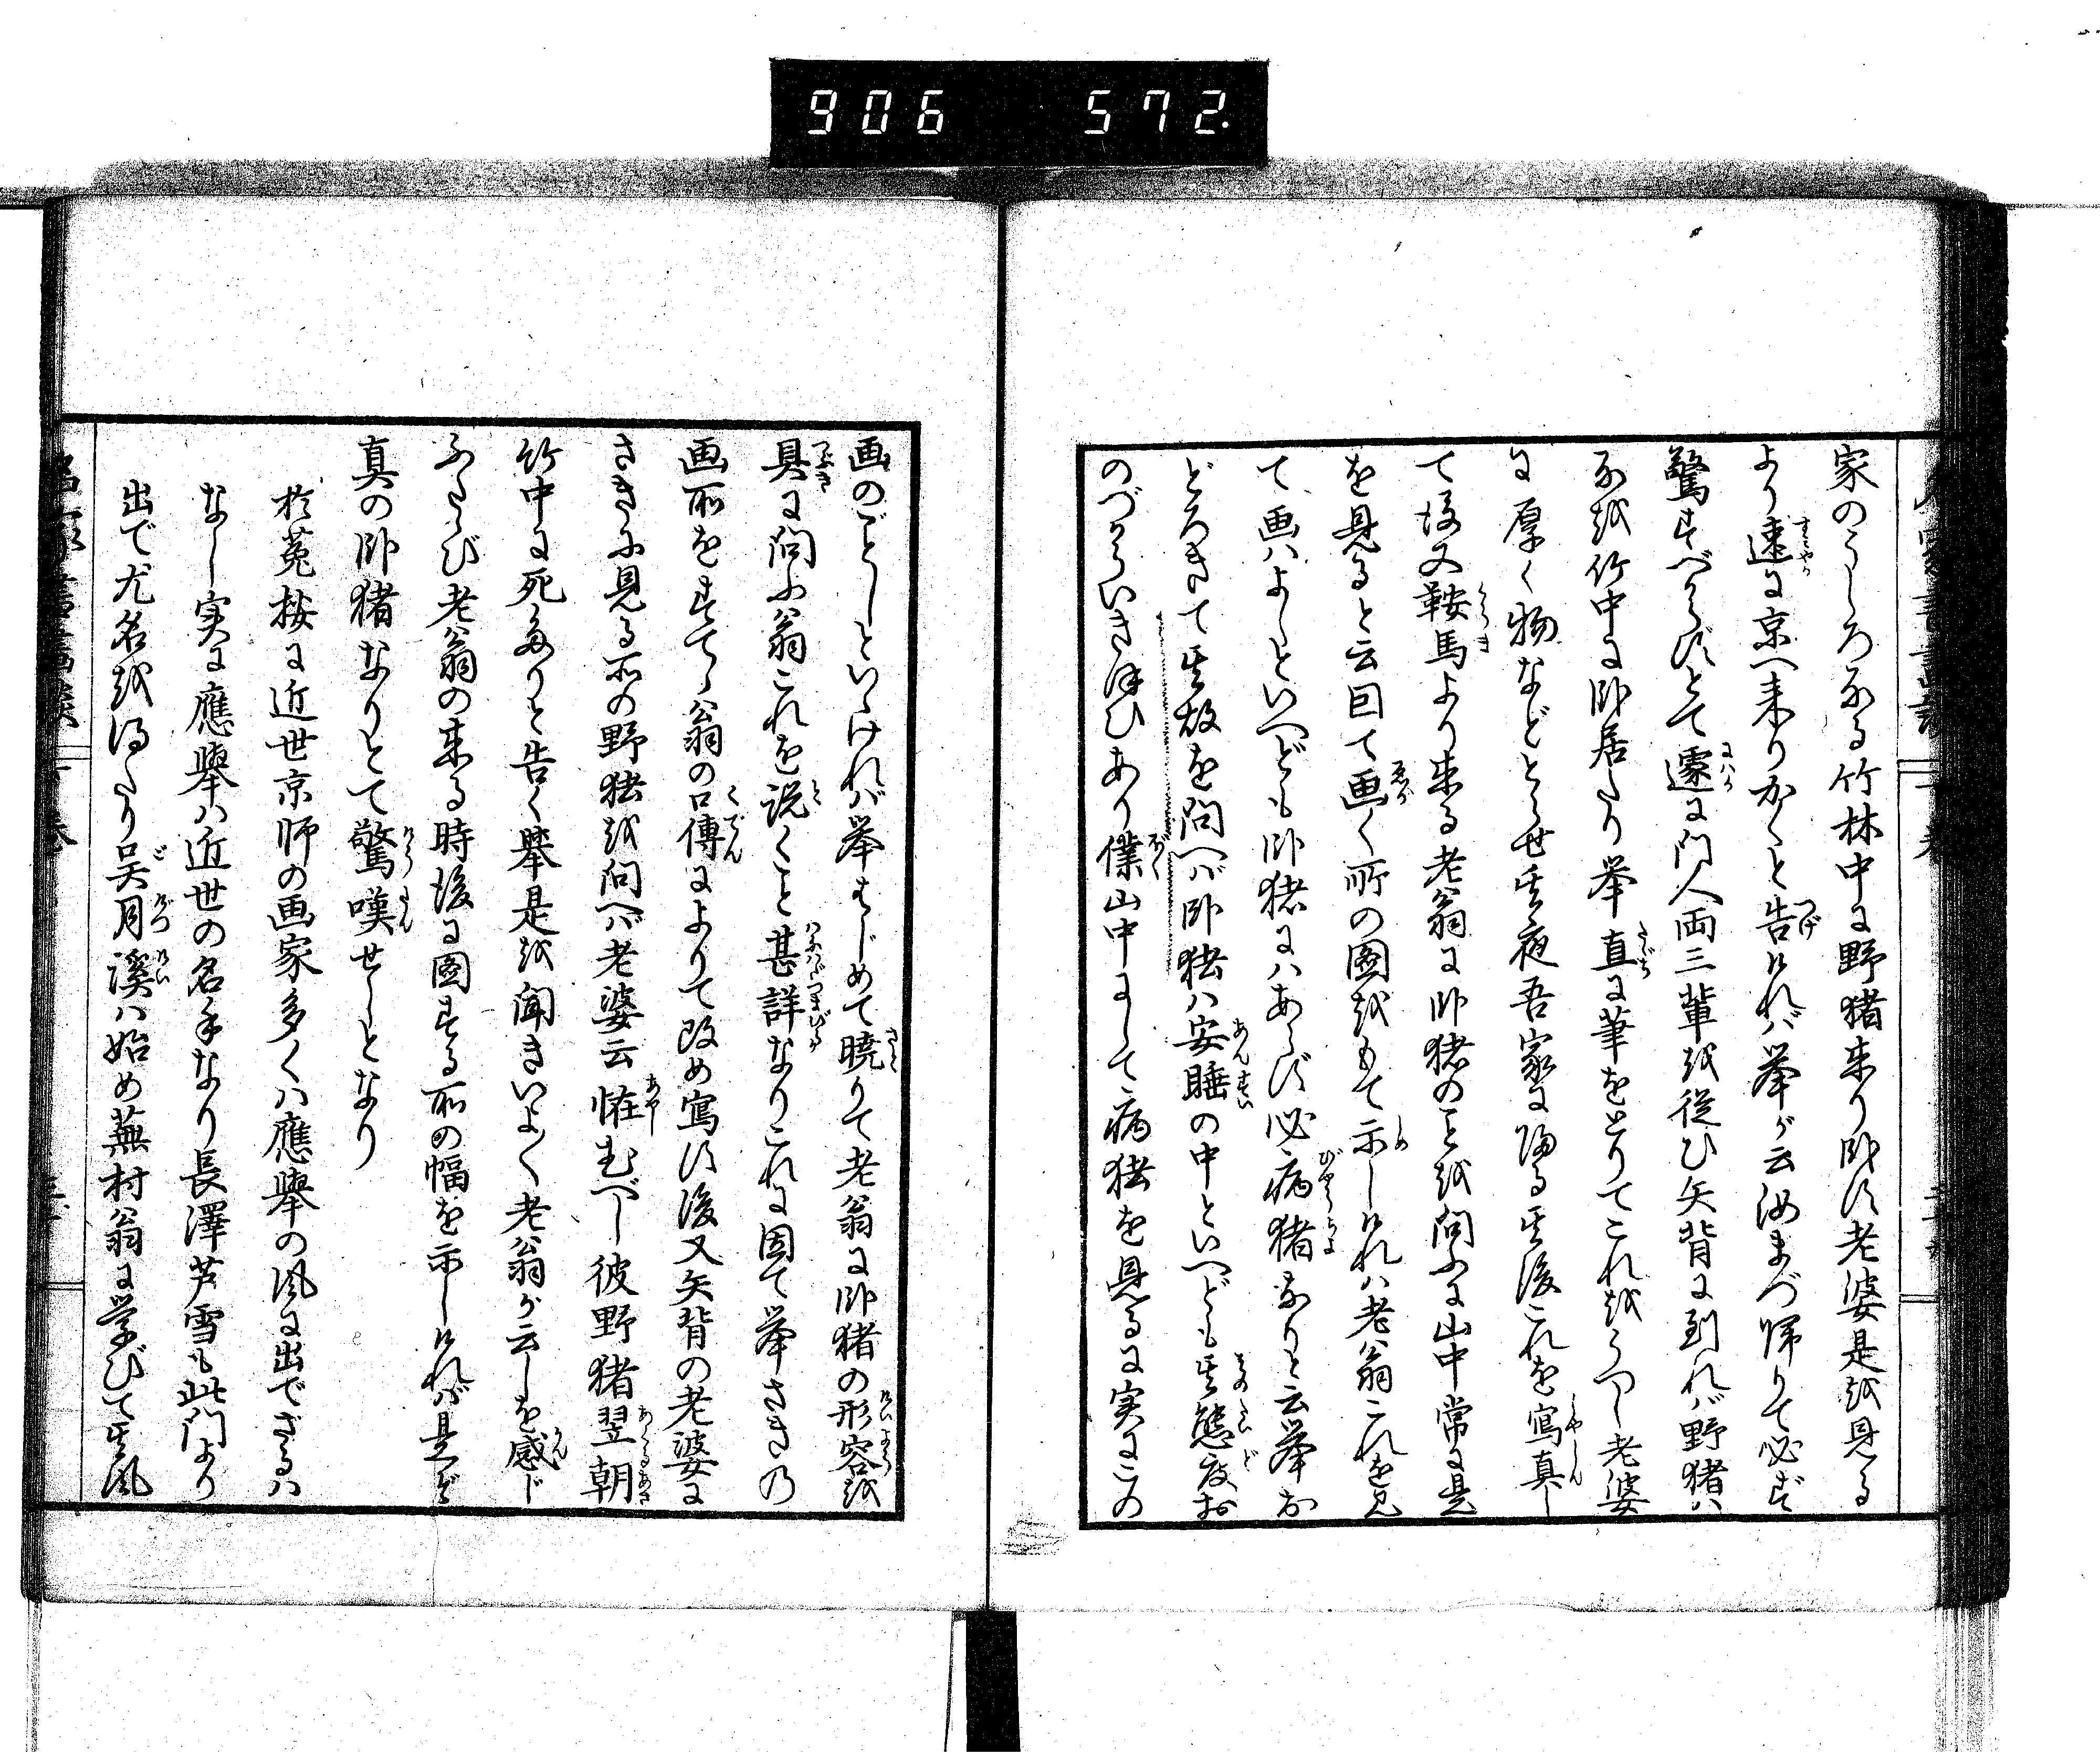 906 572
家のうしろなる竹林中に野猪来り臥す老婆是を見る
より速に京へ来りかくと告けれバ挙が云汝まづ帰りて必ず
驚すべからずとて遽に門人両三輩を従ひ矢背に到れバ野猪ハ
なを竹中に臥居たり挙直に筆をとりてこれをうつし老婆
に厚く物などとらせ其夜吾家に帰る其後これを寫真し
て後又鞍馬より来る老翁に臥猪のことを問ふに山中常に是
を見ると云因て画く所の圖をもて示しけれハ老翁これを見
て画ハよしといへども臥猪にハあらず必病猪なりと云挙お
どろきて其故を問へバ臥猪ハ安睡の中といへども其態度お
のづからいきほひあり僕山中にして病猪を見るに実にこの
画のごとしといゝけれバ挙はじめて暁りて老翁に臥猪の形容を
具に問ふ翁これを説くこと甚詳なりこれに因て挙さきの
画所をすてゝ翁の口傳によりて改め寫す後又矢背の老婆に
さきに見る所の野猪を問へバ老婆云恠むべし彼野猪翌朝
竹中に死たりと告く挙是を聞きいよ〱老翁が云しを感じ
ふたゝび老翁の来る時後に圖する所の幅を示しけれバ是ぞ
真の臥猪なりとて驚嘆せしとなり
於菟按に近世京師の画家多くハ應挙の風に出でざるハ
なし実に應挙ハ近世の名手なり長澤芦雪も此門より
出で尤名を得たり呉月溪ハ始め蕪村翁に学びて其風